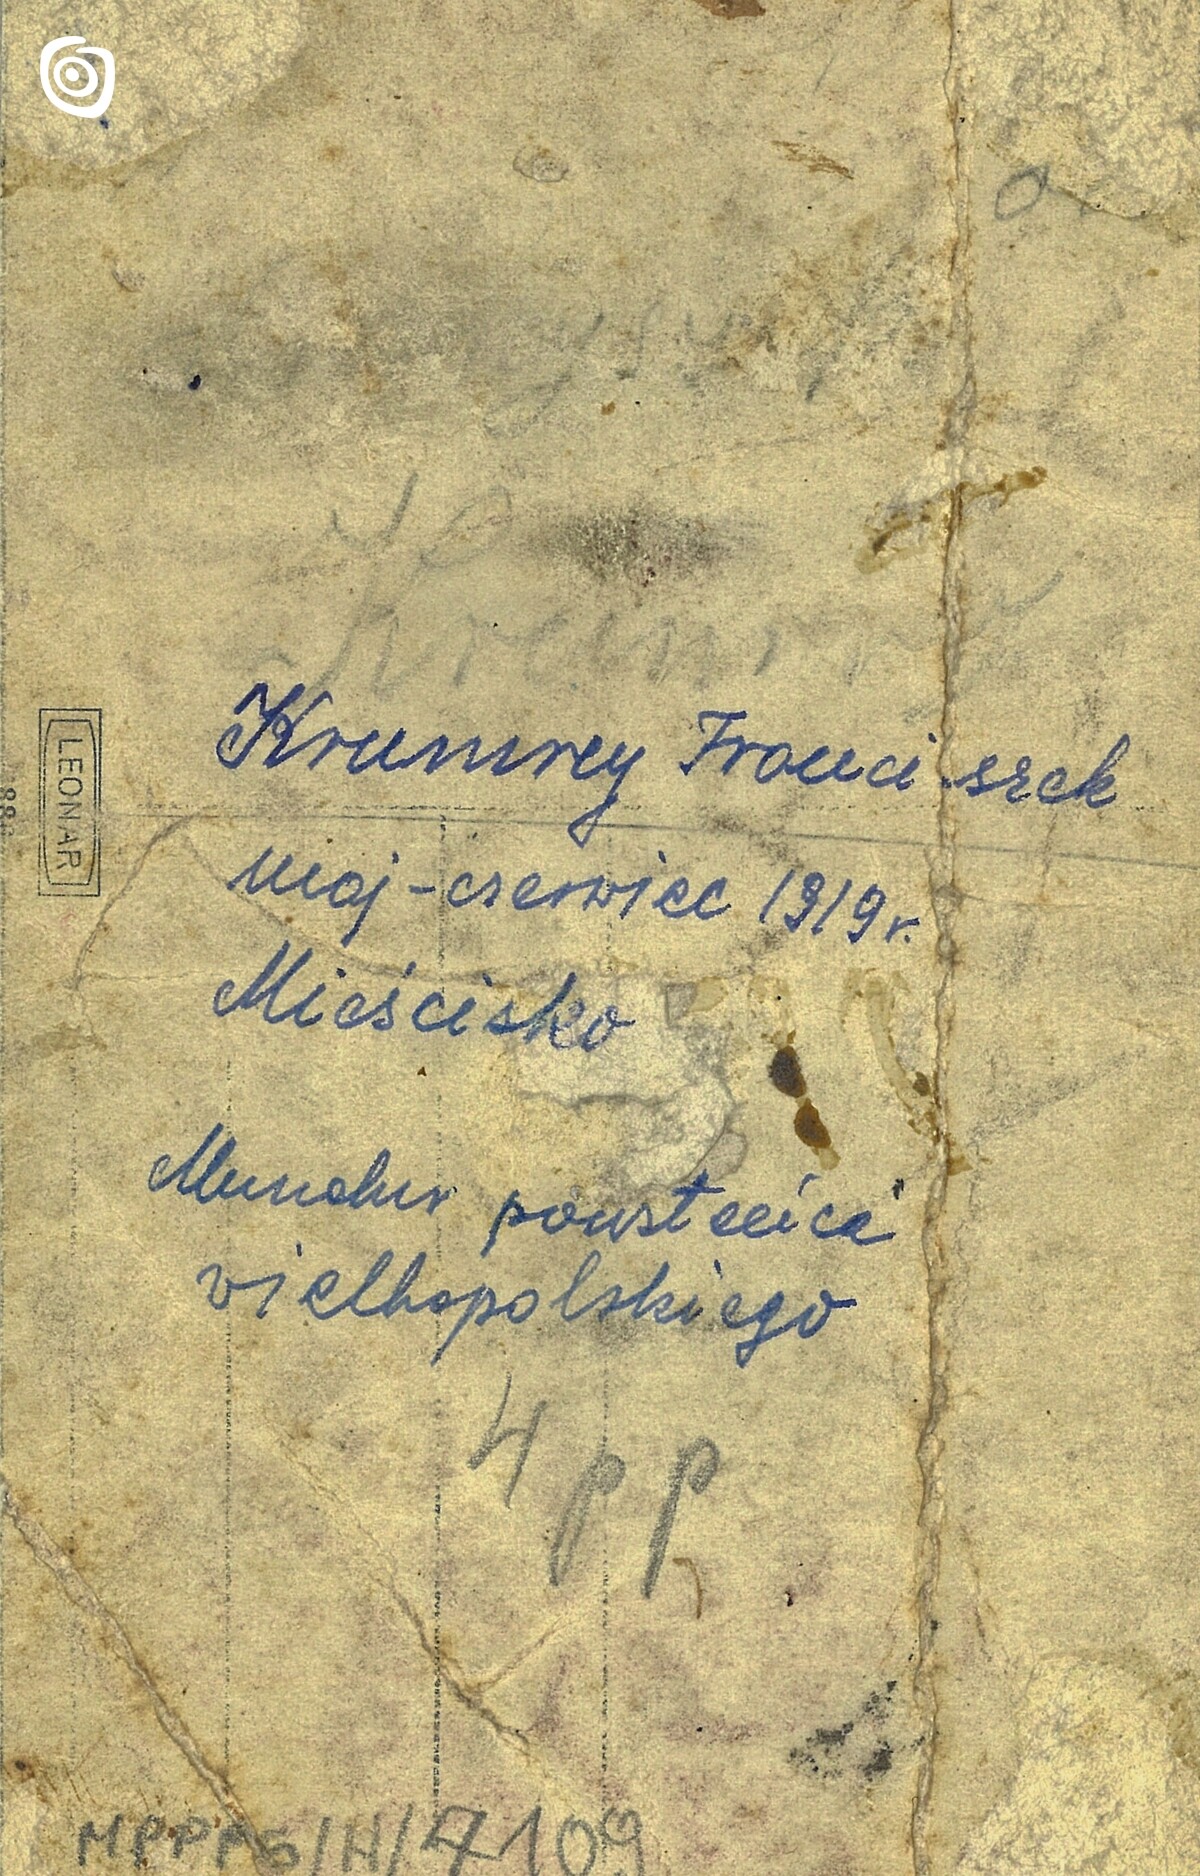 Krumrey Franciszek
maj-czerwiec 1919 r.
Mieścisko
Mundur powstańca
wielkopolskiego
4 pp
LEONAR
MPPPG/H/7109